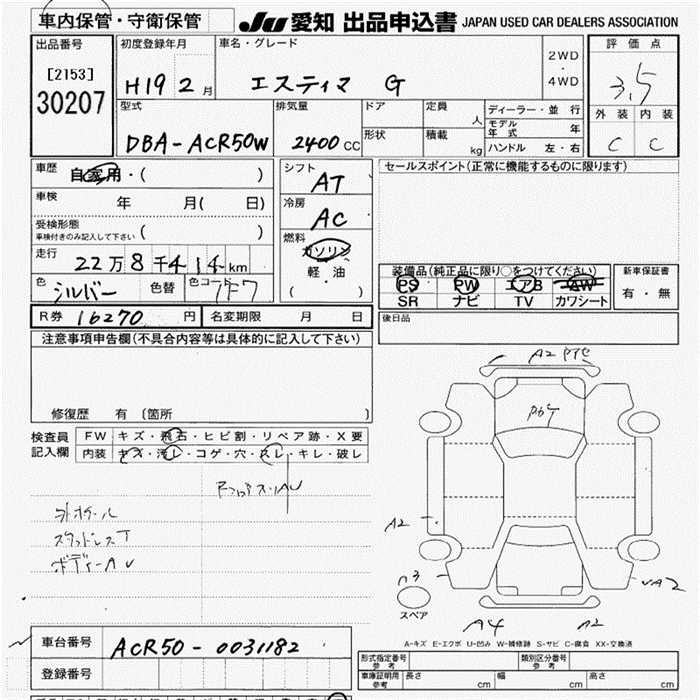 車内保管・守衛保管
JU 愛知 出品申込書 JAPAN USED CAR DEALERS ASSOCIATION
出品番号
[2153]
30207
初度登録年月
H19 2 月
車名・グレード
エスティマ G
2WD
・
4WD
評価点
3.5
外装 内装
C C
型式
DBA-ACR50W
排気量
2400 CC
ドア
形状
定員
人
積載
kg
ディーラー・並行
モデル年式 年
ハンドル 左・右
車歴
自家用・( )
車検
年 月( 日)
受検形態
車検付きのみ記入して下さい ( )
走行
22万8千414km
色
シルバー
色替
色コード
1F7
シフト
AT
冷房
AC
燃料
ガソリン
軽・油
( )
セールスポイント(正常に機能するものに限ります)
装備品(純正品に限り○をつけてください)
PS PW エアB AW
SR ナビ TV カワシート
新車保証書
有・無
R券 16270 円
名変期限 月 日
後日品
注意事項申告欄(不具合内容等は具体的に記入して下さい)
修復歴 有 [箇所 ]
検査員
記入欄
FW キズ・飛石・ヒビ割・リペア跡・X要
内装 キズ・汚レ・コゲ・穴・スレ・キレ・破レ
スタッドレスT
ボディーAU
A2
P67
A2
A2
スペア
A4
A2
A-キズ E-エクボ U-凹み W-補修跡 S-サビ C-腐食 XX-交換済
車台番号
ACR50-0031182
登録番号
形式指定番号
参考
類別区分番号
参考
車庫証明用
参考
長さ cm
幅 cm
高さ cm